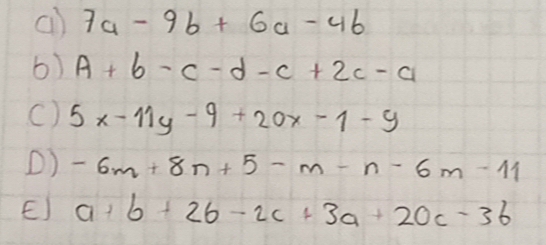 a) 7a - 9b + 6a - 4b
b) A + b - c - d - c + 2c - a
C) 5x - 11y - 9 + 20x - 1 - y
D) - 6m + 8n + 5 - m - n - 6m - 11
E) a + b + 2b - 2c + 3a + 20c - 3b